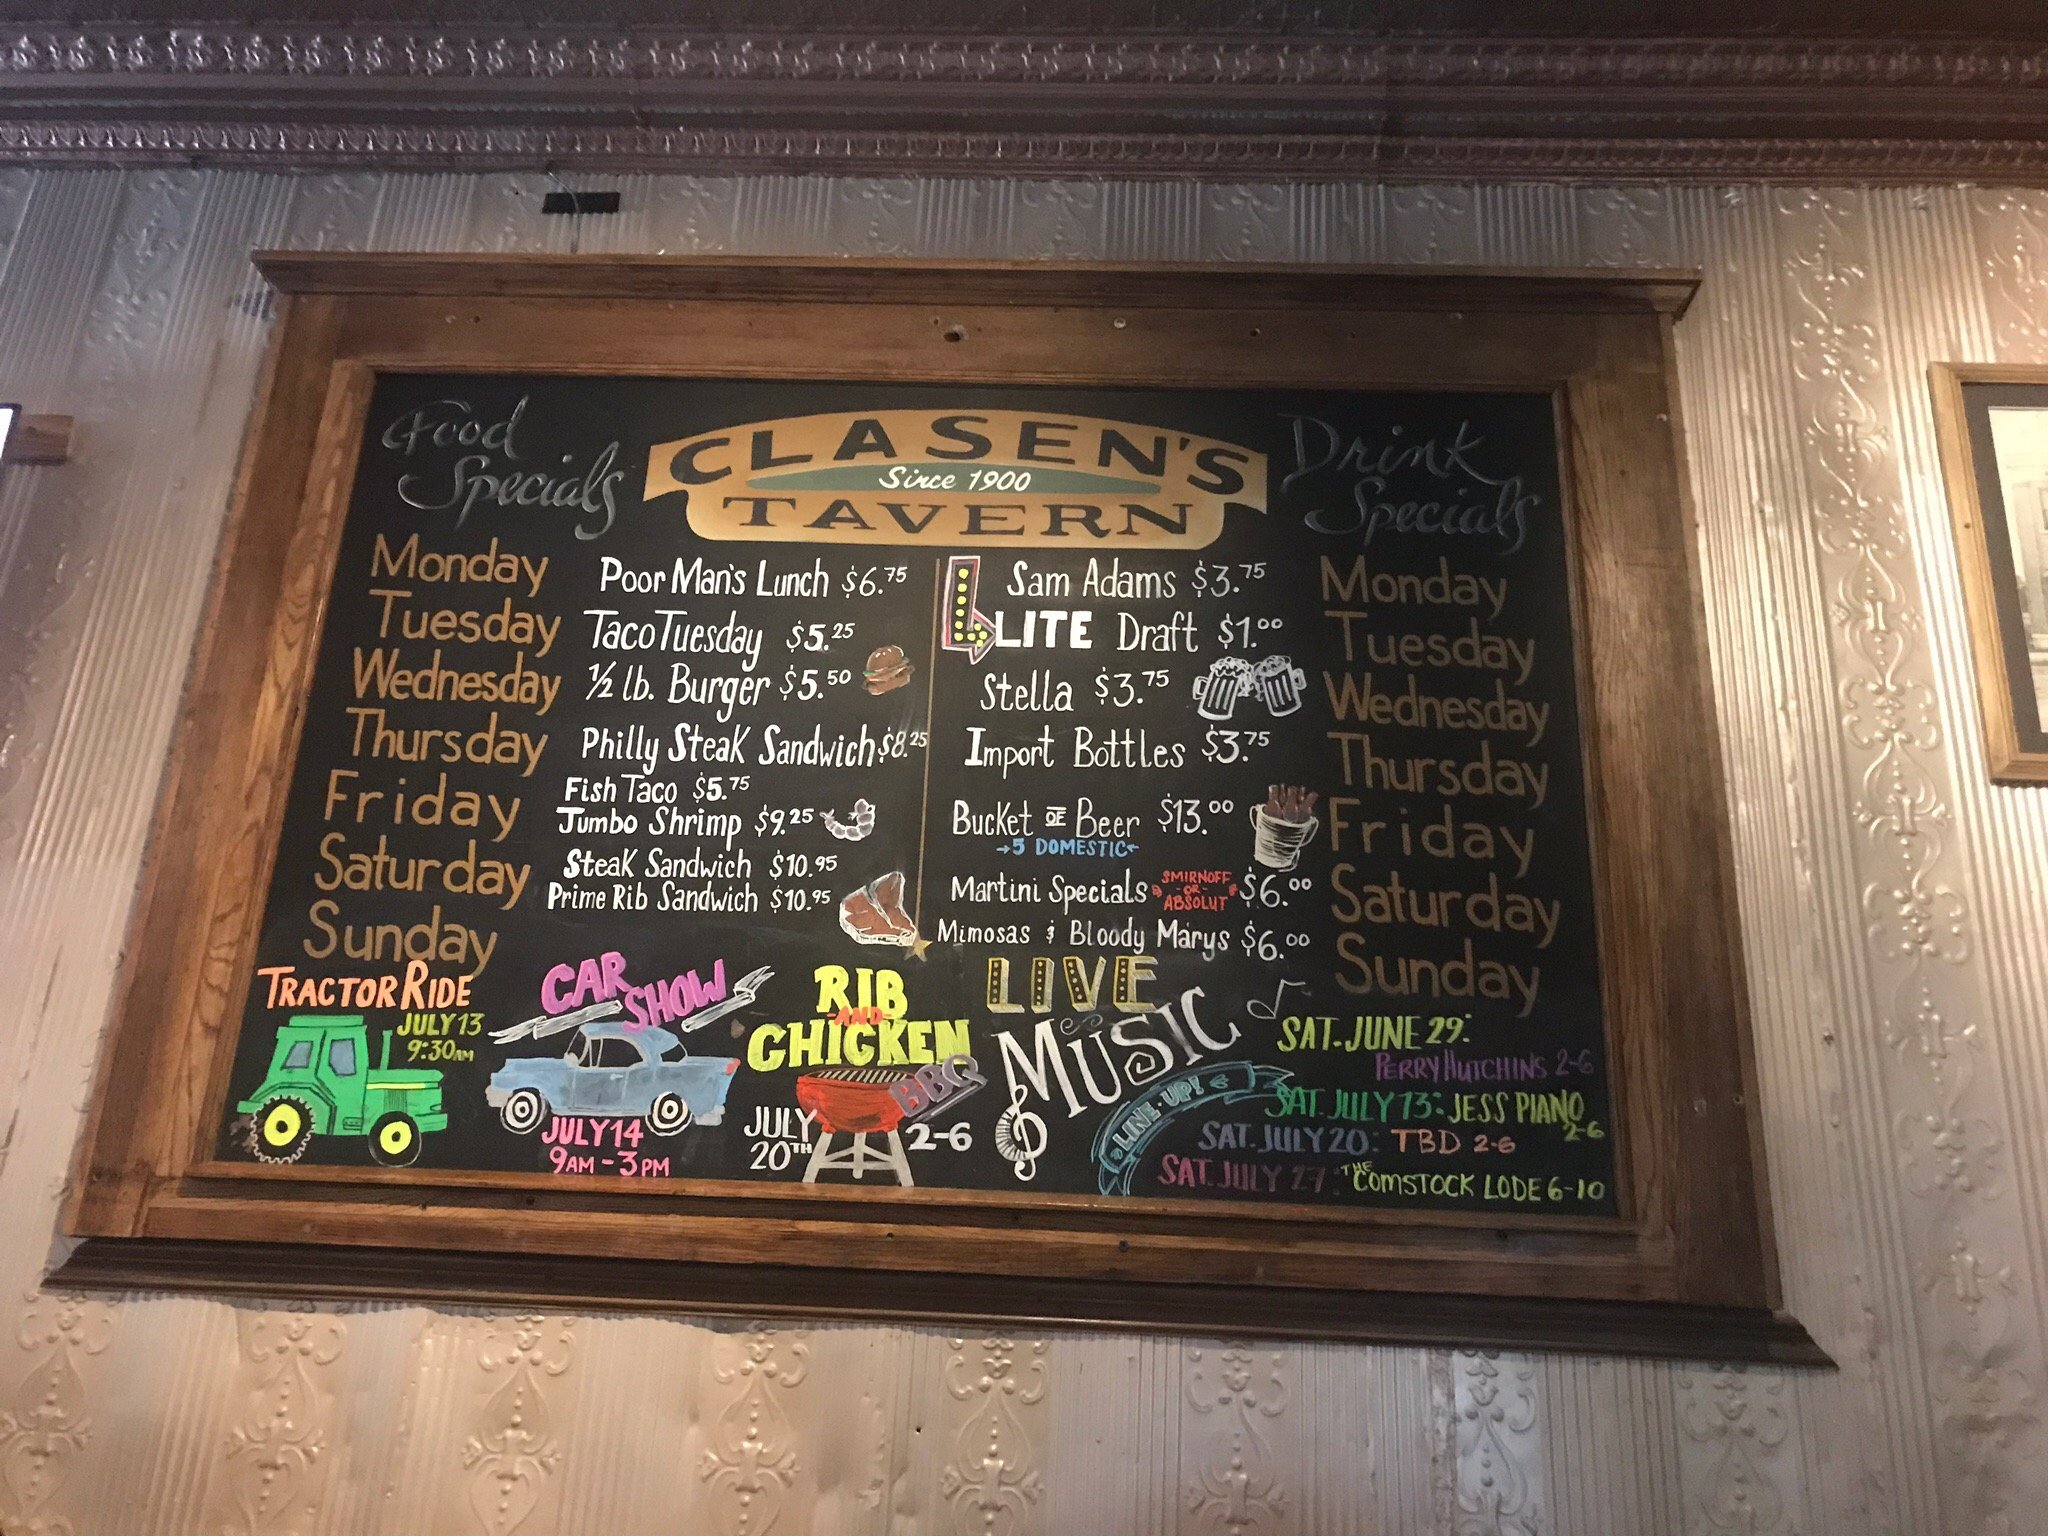 Food
Specials
CLASEN'S
Since 1900
TAVERN
Drink
Specials
Monday Poor Man's Lunch $6.75
Tuesday Taco Tuesday $5.25
Wednesday 1/2 lb. Burger $5.50
Thursday Philly Steak Sandwich $8.25
Friday Fish Taco $5.75
Jumbo Shrimp $9.25
Saturday Steak Sandwich $10.95
Prime Rib Sandwich $10.95
Sunday
Sam Adams $3.75 Monday
LITE Draft $1.00 Tuesday
Stella $3.75 Wednesday
Import Bottles $3.75 Thursday
Bucket OF Beer $13.00 Friday
5 DOMESTIC
Martini Specials SMIRNOFF -OR- ABSOLUT $6.00 Saturday
Mimosas & Bloody Marys $6.00 Sunday
TRACTOR RIDE
JULY 13
9:30AM
CAR
SHOW
JULY 14
9AM - 3PM
RIB
-AND-
CHICKEN
BBQ
JULY
20TH
2-6
LIVE
MUSIC
LINE-UP!
SAT. JUNE 29:
PERRY HUTCHINS 2-6
SAT. JULY 13: JESS PIANO
2-6
SAT. JULY 20: TBD 2-6
SAT. JULY 27: THE COMSTOCK LODE 6-10